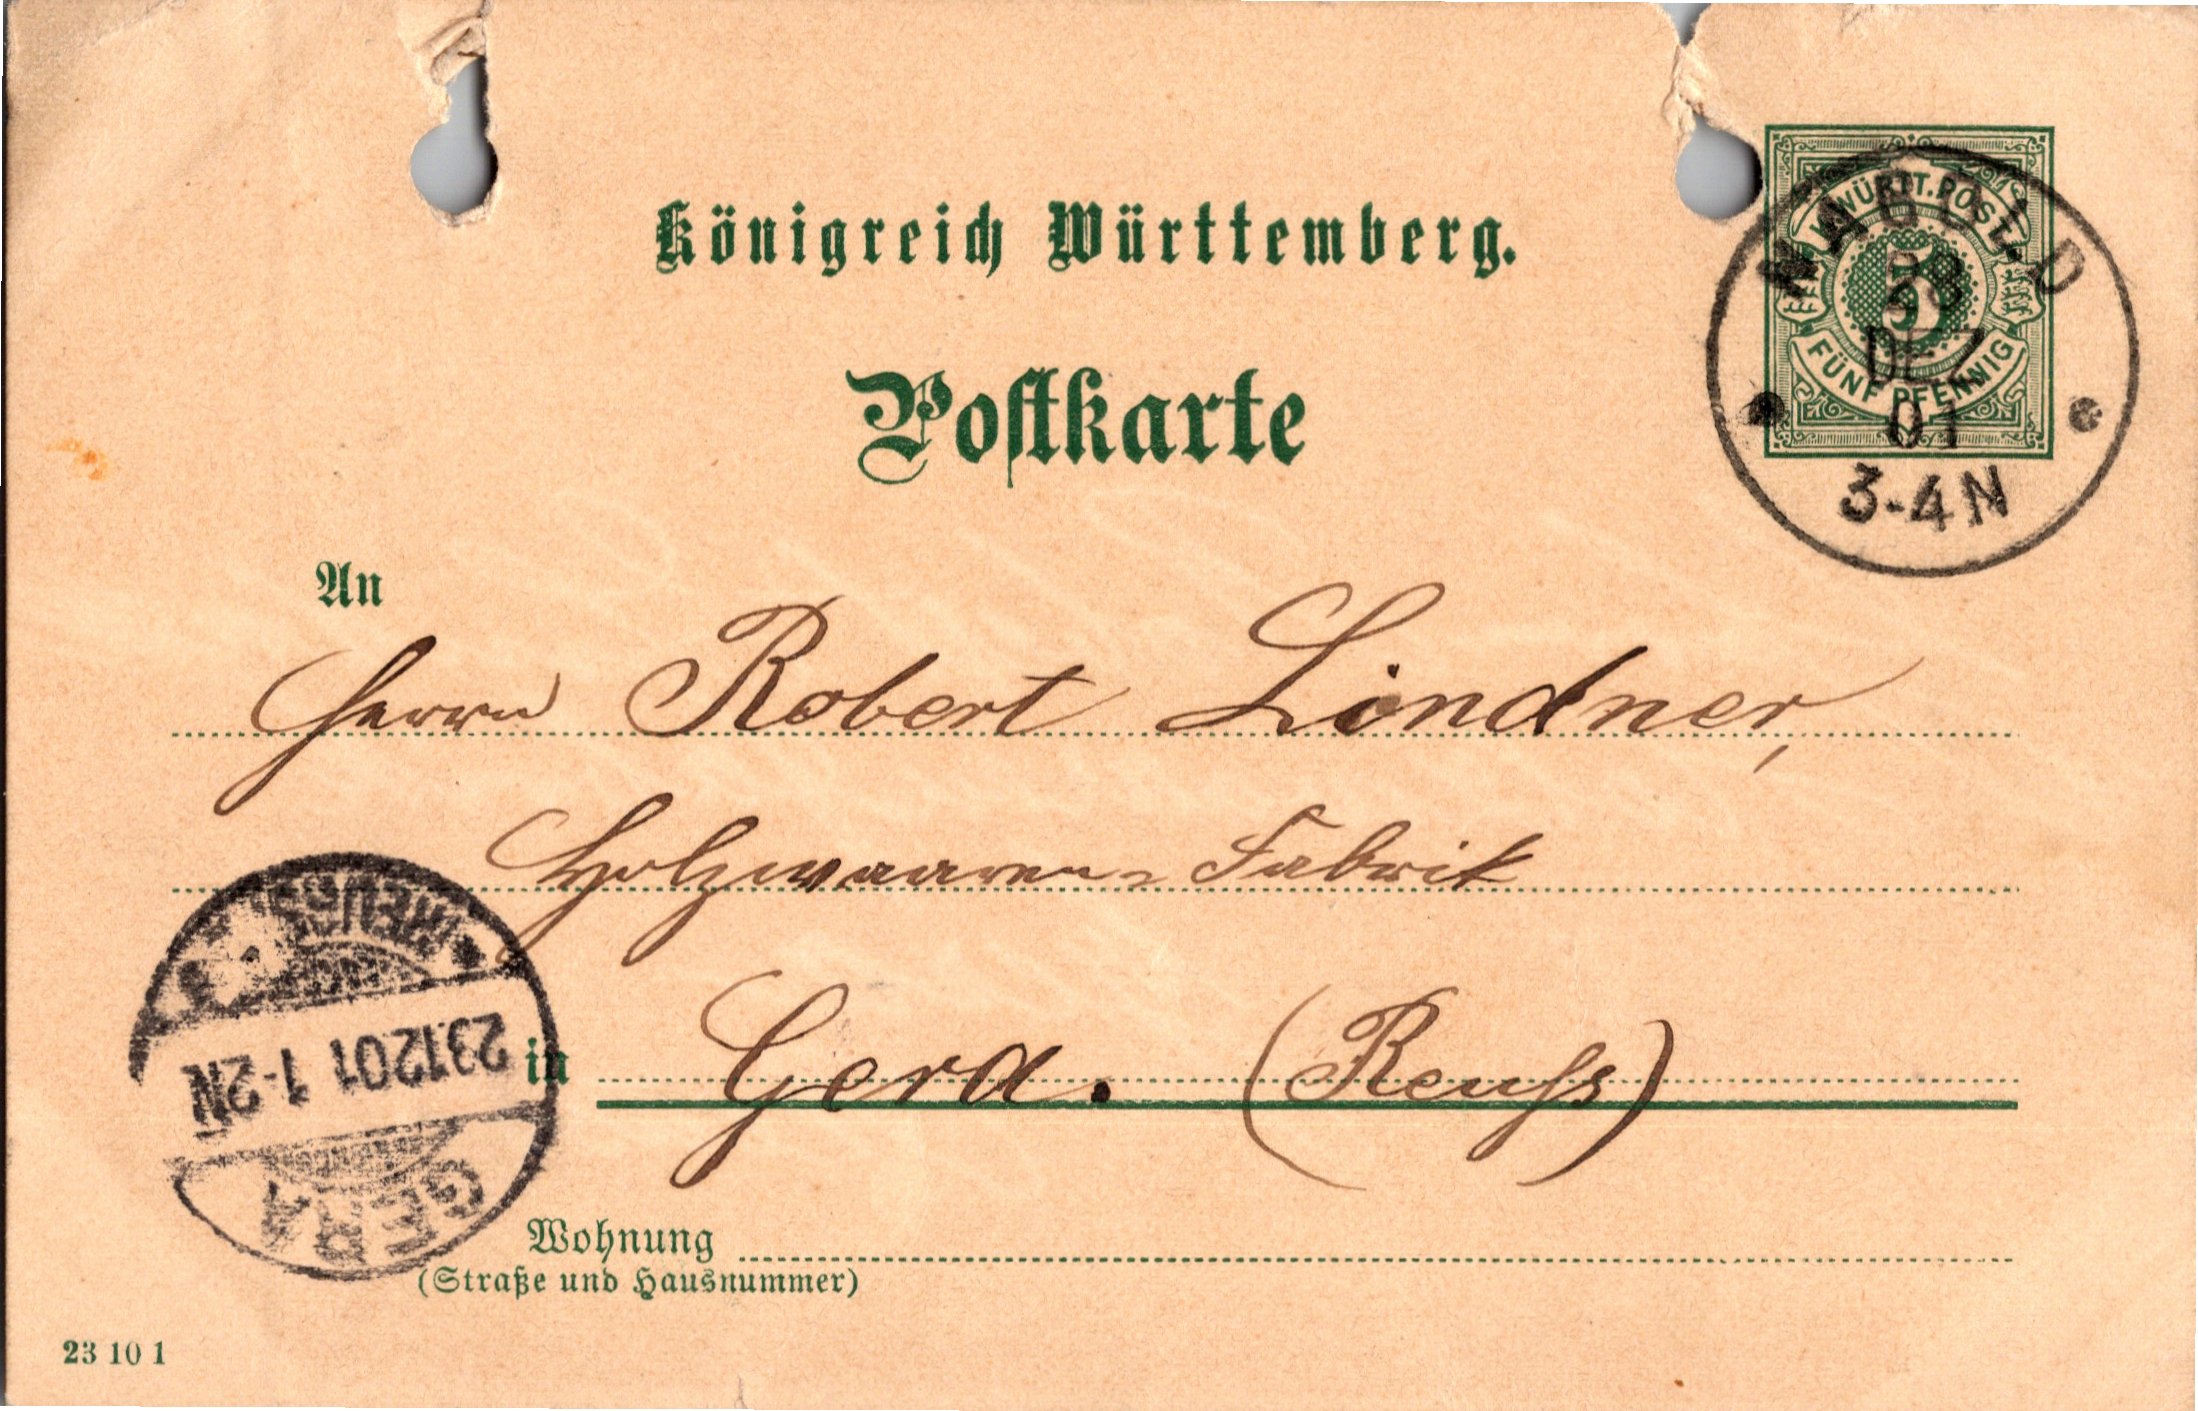 Königreich Württemberg.
K. WÜRTT. POST.
5
FÜNF PFENNIG
NAGOLD
DEZ
01
3-4N
Postkarte
An
Herrn Robert Lindner,
Holzwaaren-Fabrik
in Gera. (Reuss)
(REUSS)
23.12.01 1-2N
GERA
Wohnung
(Straße und Hausnummer)
23 10 1